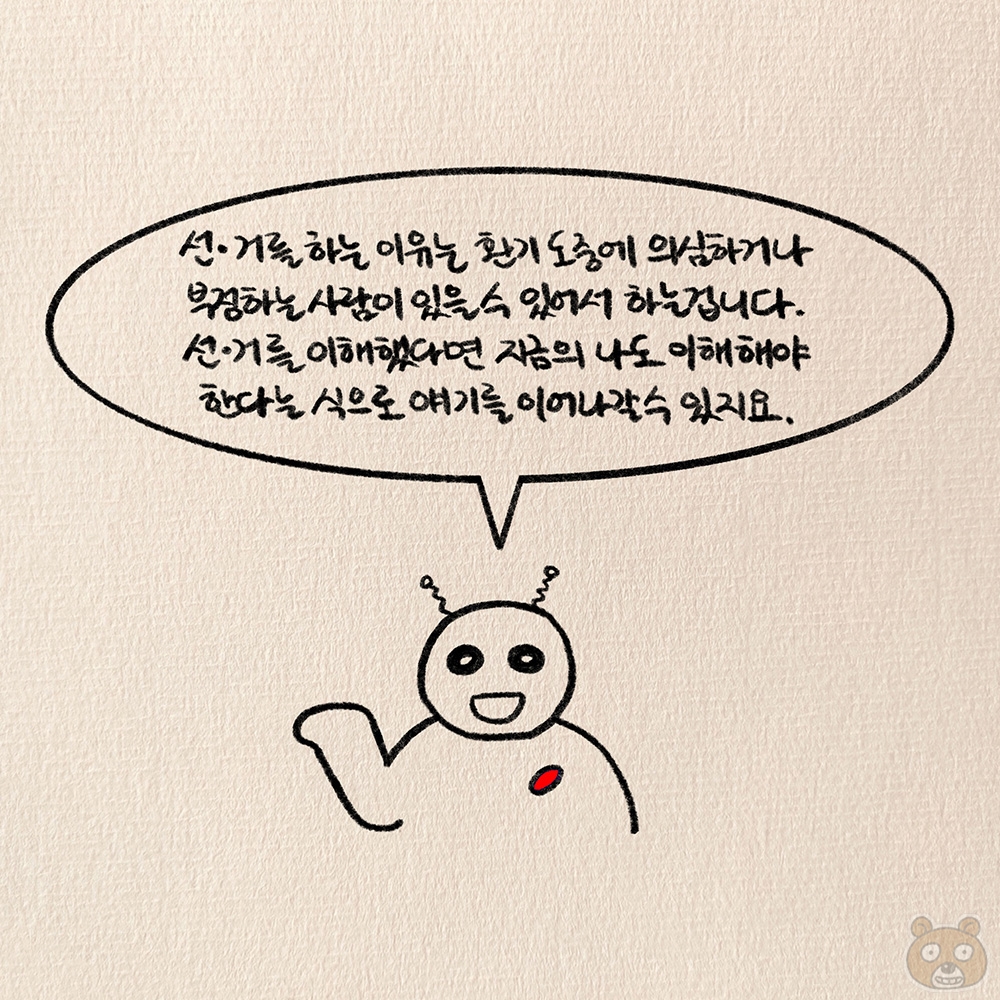 선·거를 하는 이유는 환기 도중에 의심하거나
부정하는 사람이 있을 수 있어서 하는겁니다.
선·거를 이해했다면 지금의 나도 이해해야
한다는 식으로 얘기를 이어나갈 수 있지요.